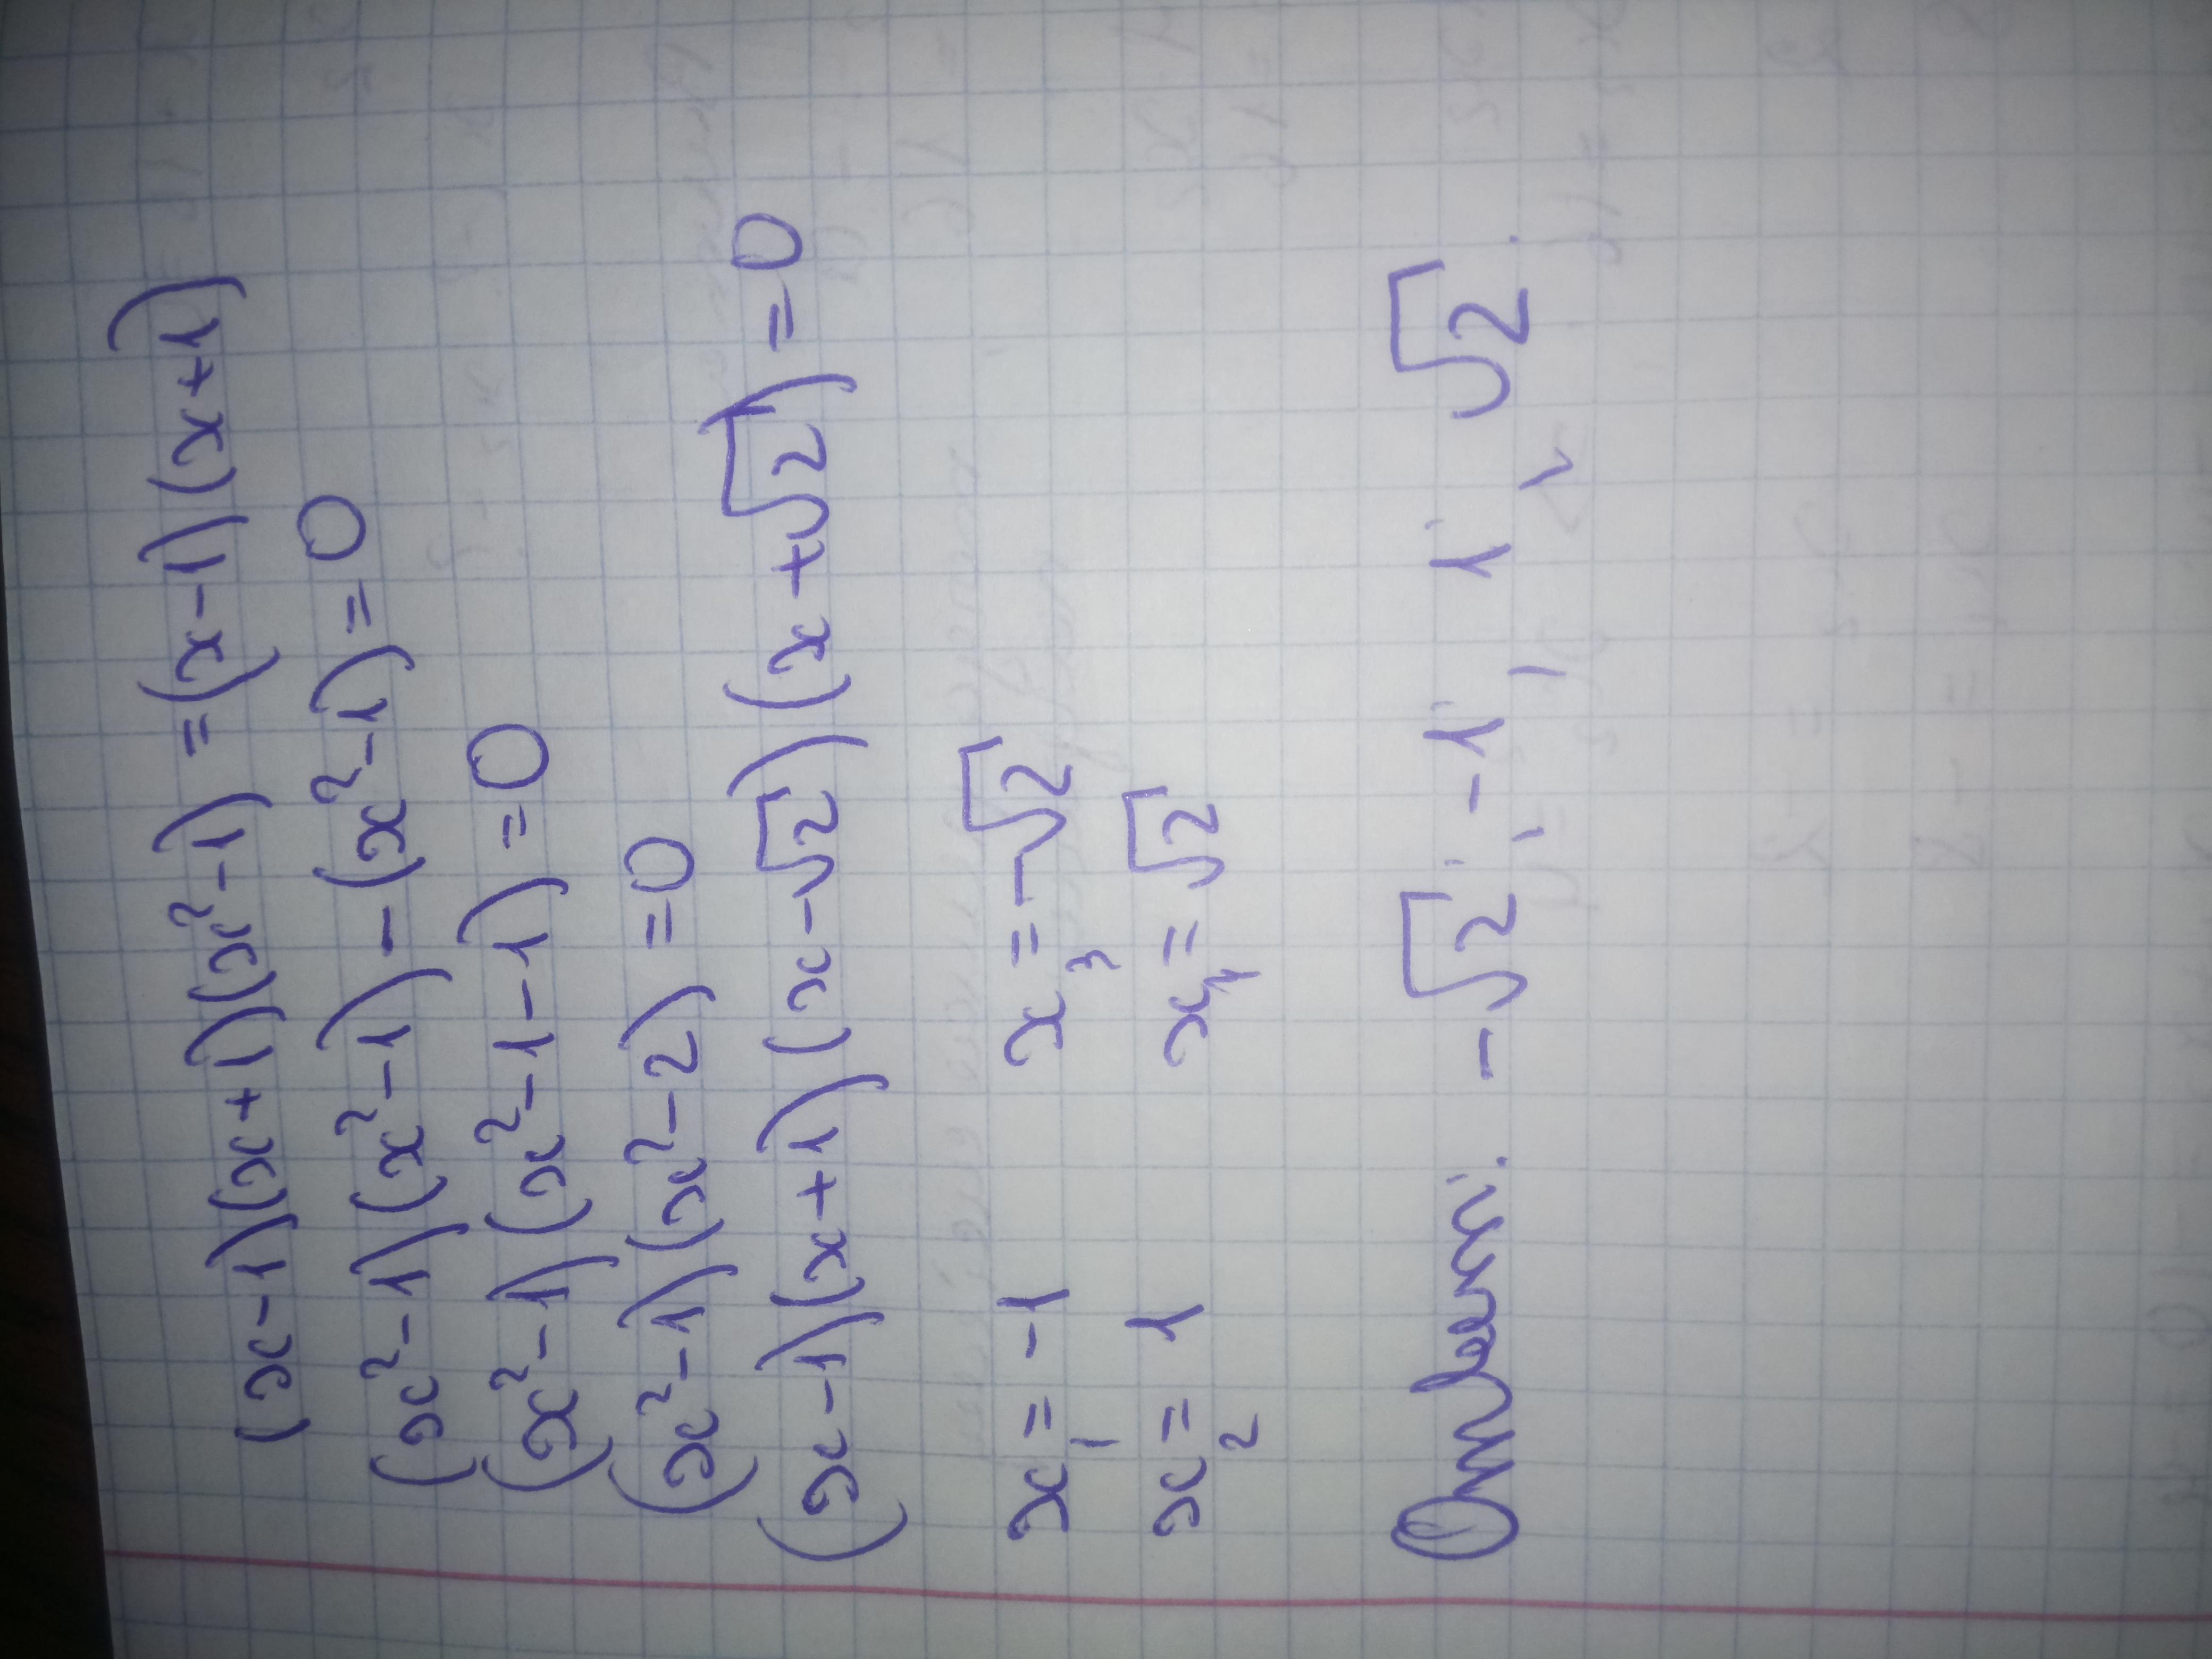 (x-1)(x+1)(x²-1) = (x-1)(x+1)
(x²-1)(x²-1) - (x²-1) = 0
(x²-1)(x²-1-1) = 0
(x²-1)(x²-2) = 0
(x-1)(x+1)(x-√2)(x+√2) = 0
x₁ = -1 x₃ = -√2
x₂ = 1 x₄ = √2
Ответ: -√2; -1; 1; √2.